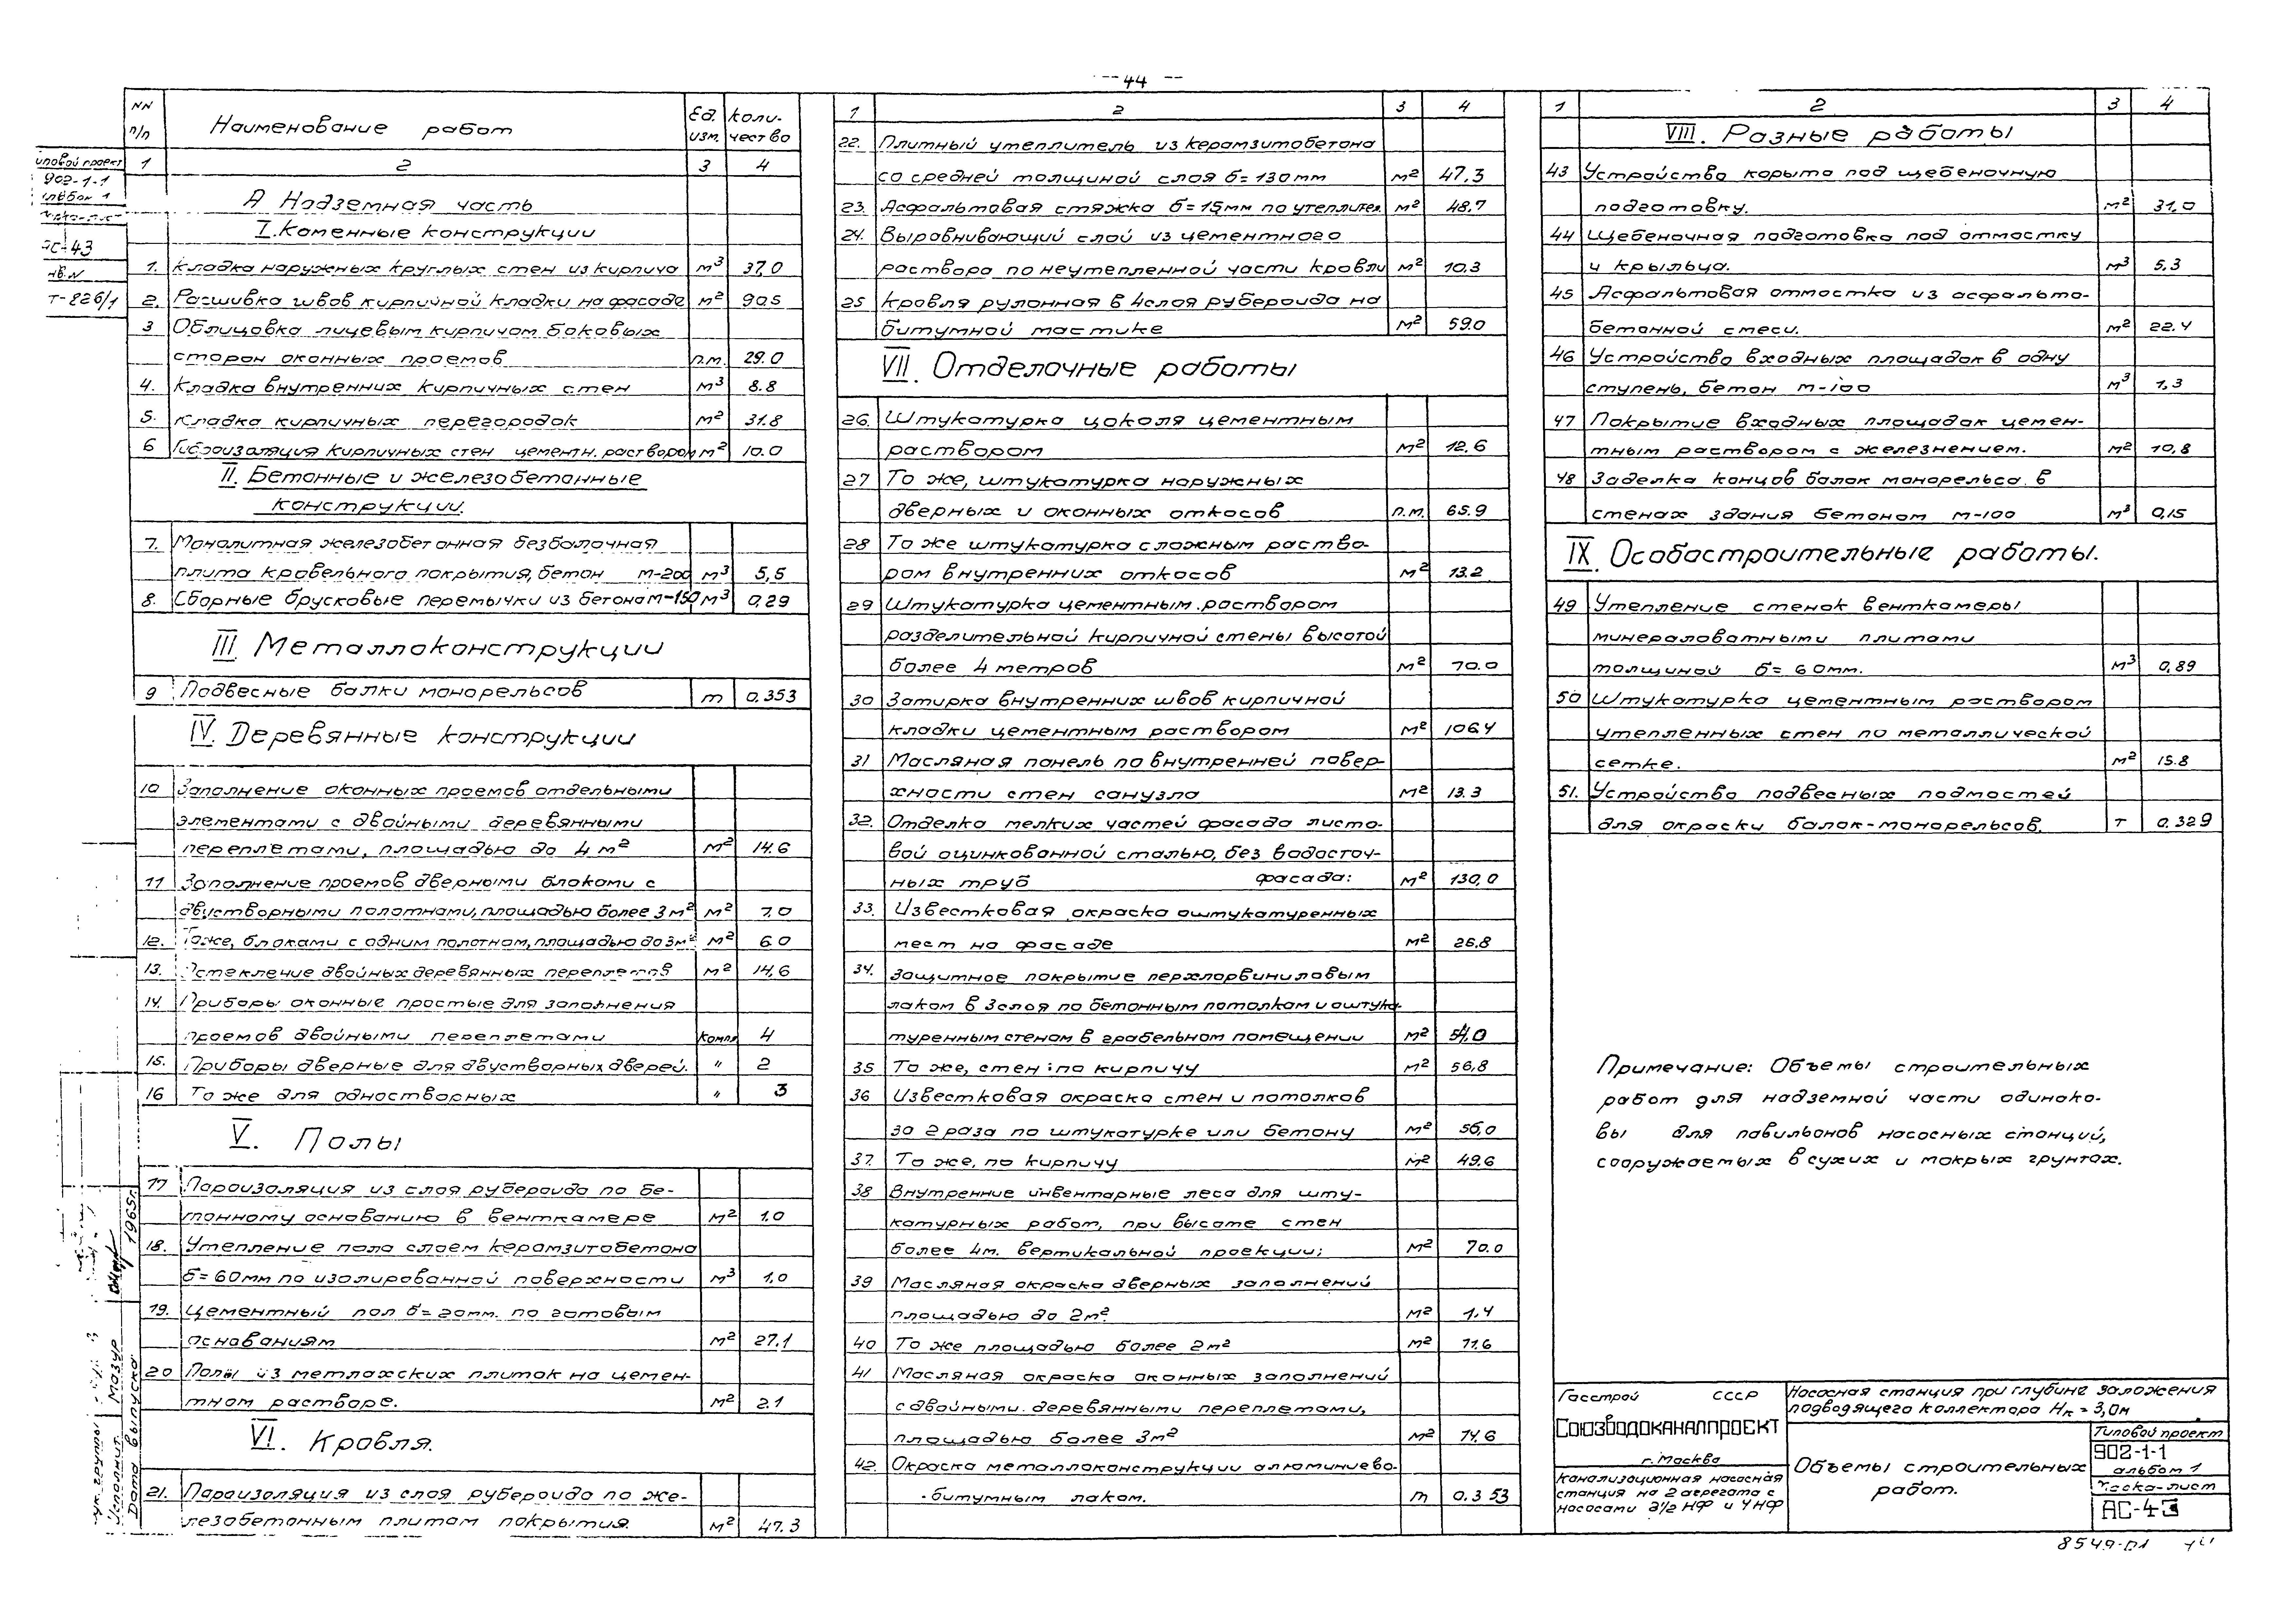 44
NN п/п Наименование работ Ед. изм. Коли-чество
1 2 3 4
А Надземная часть
I. Каменные конструкции
1. Кладка наружных круглых стен из кирпича м³ 37,0
2. Расшивка швов кирпичной кладки на фасаде м² 90.5
3 Облицовка лицевым кирпичом боковых
сторон оконных проемов п.м. 29.0
4. Кладка внутренних кирпичных стен м³ 8.8
5. Кладка кирпичных перегородок м² 31.8
6 Гидроизоляция кирпичных стен цементн. раствором м² 10.0
II. Бетонные и железобетонные
конструкции.
7. Монолитная железобетонная безбалочная
плита кровельного покрытия, бетон М-200 м³ 5,5
8. Сборные брусковые перемычки из бетона М-150 м³ 0,29
III. Металлоконструкции
9 Подвесные балки монорельсов т 0.353
IV. Деревянные конструкции
10 Заполнение оконных проемов отдельными
элементами с двойными деревянными
переплетами, площадью до 4 м² м² 14.6
11 Заполнение проемов дверными блоками с
двустворными полотнами, площадью более 3м² м² 7.0
12. То же, блоками с одним полотном, площадью до 3м² м² 6.0
13. Остекление двойных деревянных переплетов м² 14,6
14. Приборы оконные простые для заполнения
проемов двойными переплетами компл 4
15. Приборы дверные для двустворных дверей. " 2
16 То же для одностворных " 3
V. Полы
17 Пароизоляция из слоя рубероида по бе-
тонному основанию в венткамере м² 1.0
18. Утепление пола слоем керамзитобетона
б=60мм по изолированной поверхности м³ 1,0
19. Цементный пол б=20мм. по готовым
основаниям м² 27.1
20 Полы из метлахских плиток на цемен-
тном растворе. м² 2.1
VI. Кровля.
21. Пароизоляция из слоя рубероида по же-
лезобетонным плитам покрытия. м² 47.3
1 2 3 4
22. Плитный утеплитель из керамзитобетона
со средней толщиной слоя б=130мм м² 47.3
23. Асфальтовая стяжка б=15мм по утеплител. м² 48.7
24. Выровнивающий слой из цементного
раствора по неутепленной части кровли м² 10.3
25 Кровля рулонная в 4слоя рубероида на
битумной мастике м² 59.0
VII. Отделочные работы
26. Штукатурка цоколя цементным
раствором м² 12.6
27 То же, штукатурка наружных
дверных и оконных откосов п.м. 65.9
28 То же штукатурка сложным раство-
ром внутренних откосов м² 13.2
29 Штукатурка цементным раствором
разделительной кирпичной стены высотой
более 4 метров м² 70.0
30 Затирка внутренних швов кирпичной
кладки цементным раствором м² 106.4
31 Масляная панель по внутренней повер-
хности стен санузла м² 13.3
32. Отделка мелких частей фасада листо-
вой оцинкованной сталью, без водосточ-
ных труб фасада: м² 130,0
33. Известковая окраска оштукатуренных
мест на фасаде м² 26.8
34. Защитное покрытие перхлорвиниловым
лаком в 3слоя по бетонным потолкам и оштука-
туренным стенам в грабельном помещении м² 54,0
35 То же, стен: по кирпичу м² 56,8
36 Известковая окраска стен и потолков
за 2 раза по штукатурке или бетону м² 56,0
37. То же, по кирпичу м² 49.6
38 Внутренние инвентарные леса для шту-
катурных работ, при высоте стен
более 4м. вертикальной проекции; м² 70.0
39 Масляная окраска дверных заполнений
площадью до 2м² м² 1.4
40 То же площадью более 2м² м² 11.6
41 Масляная окраска оконных заполнений
с двойными деревянными переплетами,
площадью более 3м² м² 14.6
42. Окраска металлоконструкции алюминиево-
-битумным лаком. т 0.353
1 2 3 4
VIII. Разные работы
43 Устройство корыта под щебеночную
подготовку. м² 31,0
44 Щебеночная подготовка под отмостку
и крыльца. м³ 5.3
45 Асфальтовая отмостка из асфальто-
бетонной смеси. м² 22.4
46 Устройство входных площадок в одну
ступень, бетон М-100 м³ 1,3
47 Покрытие входных площадок цемен-
тным раствором с железнением. м² 10,8
48 Заделка концов балок монорельса в
стенах здания бетоном М-100 м³ 0,15
IX. Особостроительные работы.
49 Утепление стенок венткамеры
минераловатными плитами
толщиной б=60мм. м³ 0,89
50 Штукатурка цементным раствором
утепленных стен по металлической
сетке. м² 15.8
51. Устройство подвесных подмостей
для окраски балок-монорельсов. т 0.329
Примечание: Объемы строительных
работ для надземной части одинако-
вы для павильонов насосных станций,
сооружаемых в сухих и мокрых грунтах.
Госстрой СССР
СОЮЗВОДОКАНАЛПРОЕКТ
г. Москва
Канализационная насосная
станция на 2 агрегата с
насосами 2½ НФ и 4НФ
Насосная станция при глубине заложения
подводящего коллектора Нк = 3,0м
Объемы строительных
работ.
Типовой проект
902-1-1
альбом 1
Марка-лист
АС-43
8549-01
иповой проект
902-1-1
альбом 1
Марка-лист
АС-43
нв.N
Т-826/1
ук. группы
Исполнит. Мазур
Дата выпуска 1965г.